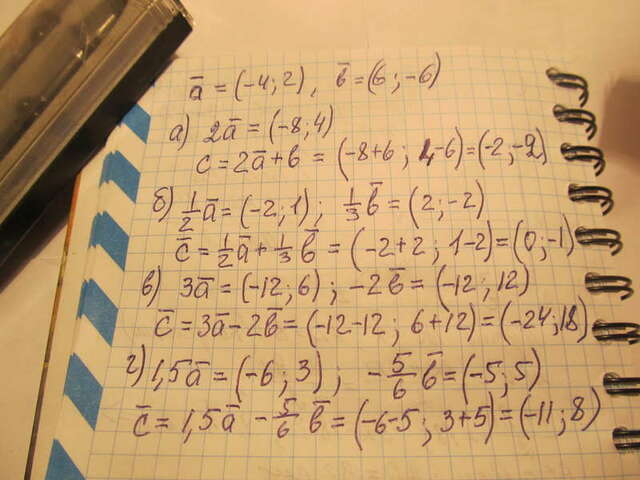 a̅ = (-4; 2), в̅ = (6; -6)
а) 2a̅ = (-8; 4)
c = 2a̅ + в = (-8+6; 4-6) = (-2; -2)
б) 1/2 a̅ = (-2; 1); 1/3 в̅ = (2; -2)
c̅ = 1/2 a̅ + 1/3 в̅ = (-2+2; 1-2) = (0; -1)
в) 3a̅ = (-12; 6); -2в̅ = (-12; 12)
c̅ = 3a̅ - 2в̅ = (-12-12; 6+12) = (-24; 18)
г) 1,5a̅ = (-6; 3); -5/6 в̅ = (-5; 5)
c̅ = 1,5a̅ - 5/6 в̅ = (-6-5; 3+5) = (-11; 8)